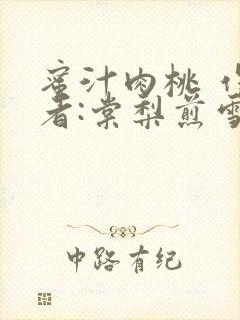 蜜汁肉桃
者:棠梨煎雪
中路有纪